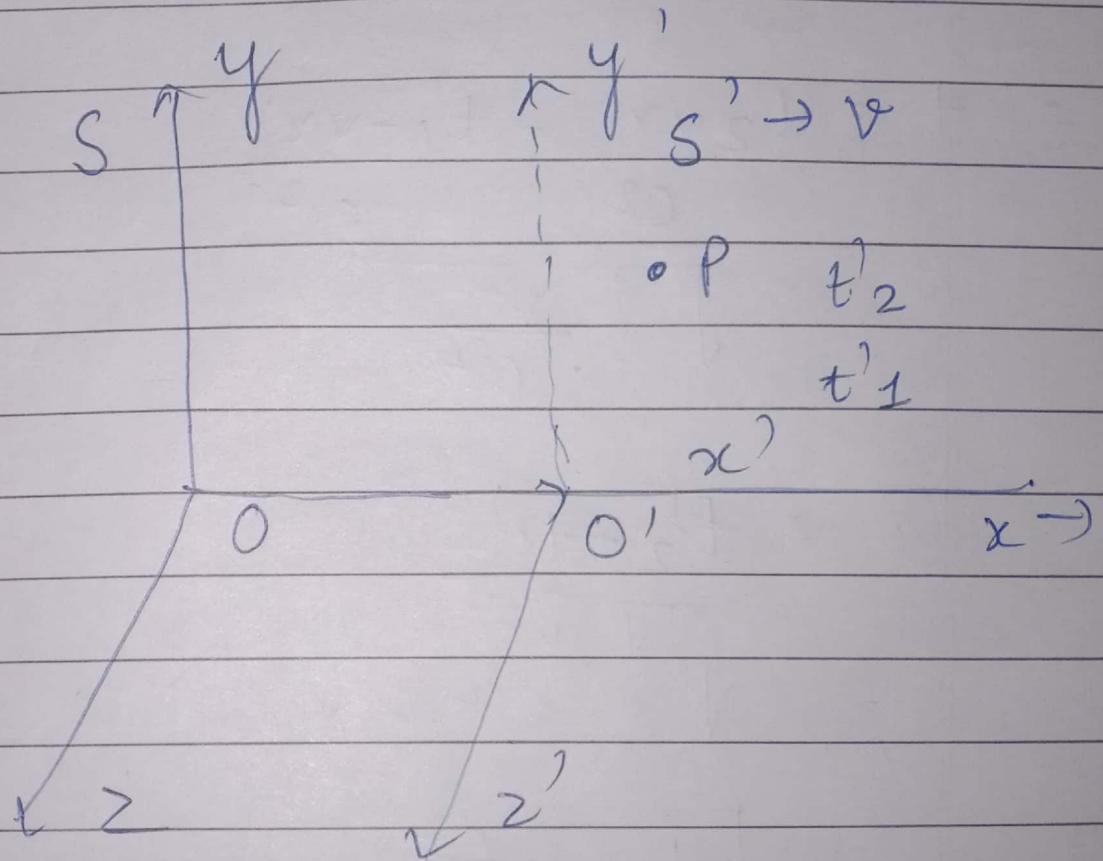 y y'
S S' → v
• P t'2
t'1
x'
O O' x →
z z'